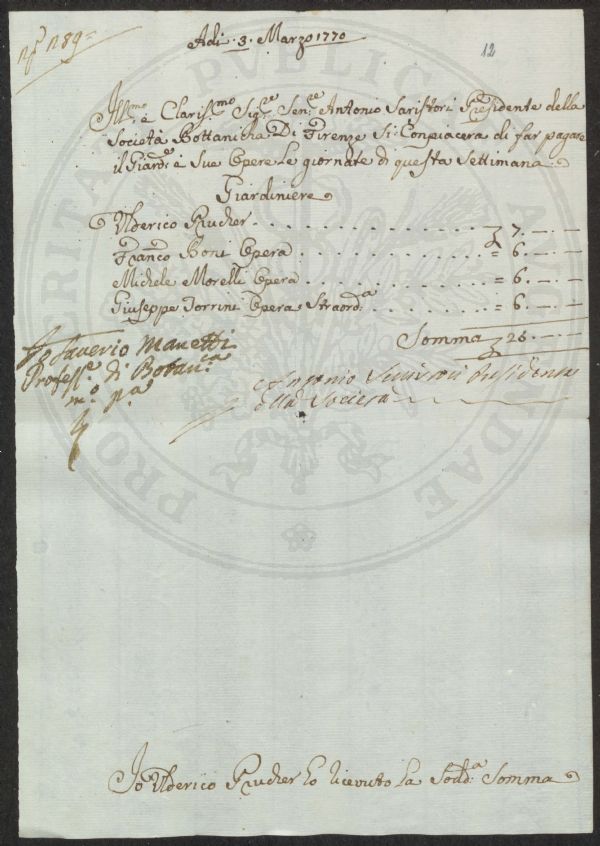 N.º 289=
Adi 3. Marzo 1770
12
Ill.mo e Claris.mo Sig.re Sen.re Antonio Saristori Presidente della
Società Bottanicha Di Firenze Si Conpiacera di far pagare
il Giard.e e Sue Opere le giornate di questa Settimana
Giardiniere
Ulderico Prucher . . . . . . . . . . . . 7.—.—
Franc.o Boni Opera . . . . . . . . . = 6.—.—
Michele Morelli Opera . . . . . . . . . = 6.—.—
Giuseppe Torrini Opera Straord.a . . . . . . . = 6.—.—
Somma 25.—.—
Saverio Manetti
Profess.e di Botan.ca
m.o p.a
Antonio Presidente
della Società
Io Ulderico Prucher ho ricevuto la Sodd.a Somma
PRO PVBLICA